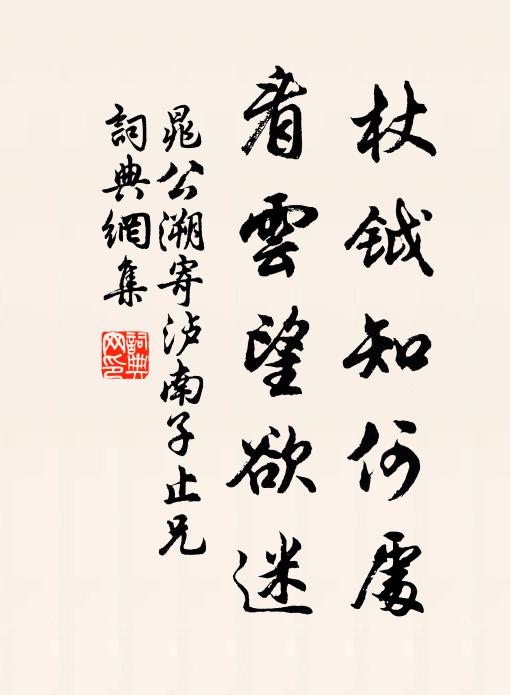 杖鉞知何處
看雲望欲迷
晁公溯寄泸南子止兄
詞典網集
詞典
网印